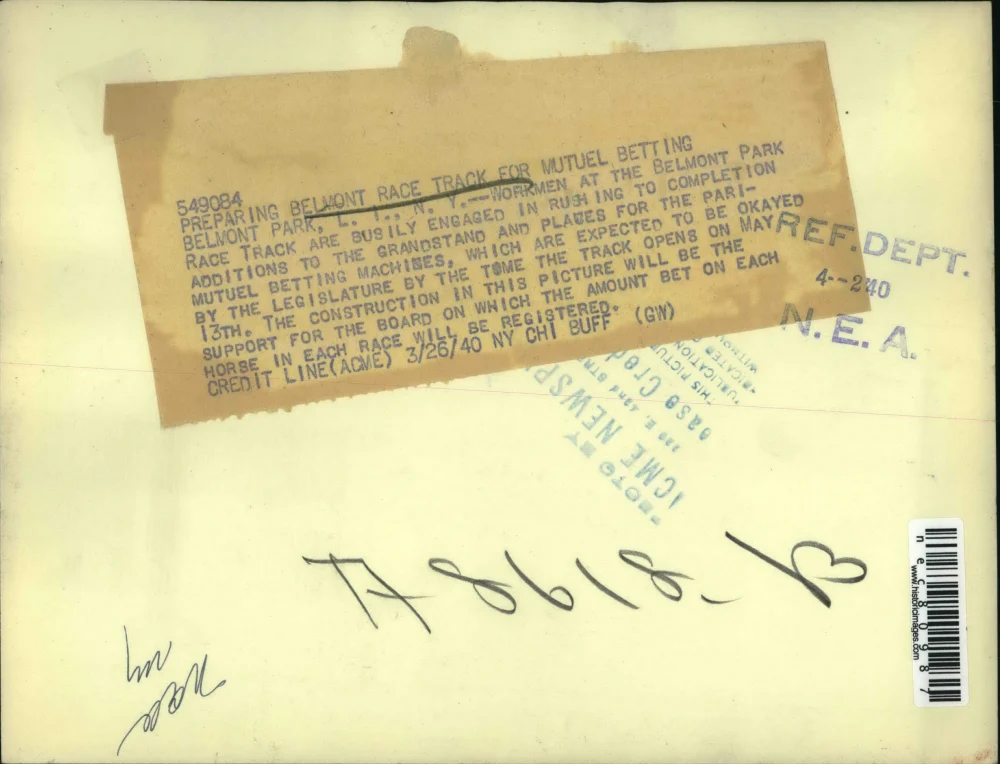 549084
PREPARING BELMONT RACE TRACK FOR MUTUEL BETTING
BELMONT PARK, L. I., N. Y.--WORKMEN AT THE BELMONT PARK
RACE TRACK ARE BUSILY ENGAGED IN RUSHING TO COMPLETION
ADDITIONS TO THE GRANDSTAND AND PLACES FOR THE PARI-
MUTUEL BETTING MACHINES, WHICH ARE EXPECTED TO BE OKAYED
BY THE LEGISLATURE BY THE TIME THE TRACK OPENS ON MAY
13TH. THE CONSTRUCTION IN THIS PICTURE WILL BE THE
SUPPORT FOR THE BOARD ON WHICH THE AMOUNT BET ON EACH
HORSE IN EACH RACE WILL BE REGISTERED.
CREDIT LINE(ACME) 3/26/40 NY CHI BUFF (GW)
REF. DEPT.
4--2 40
N. E. A.
THIS PICTU
BY
ACME NEWSP
A 8618-B
nec80987
www.historicimages.com